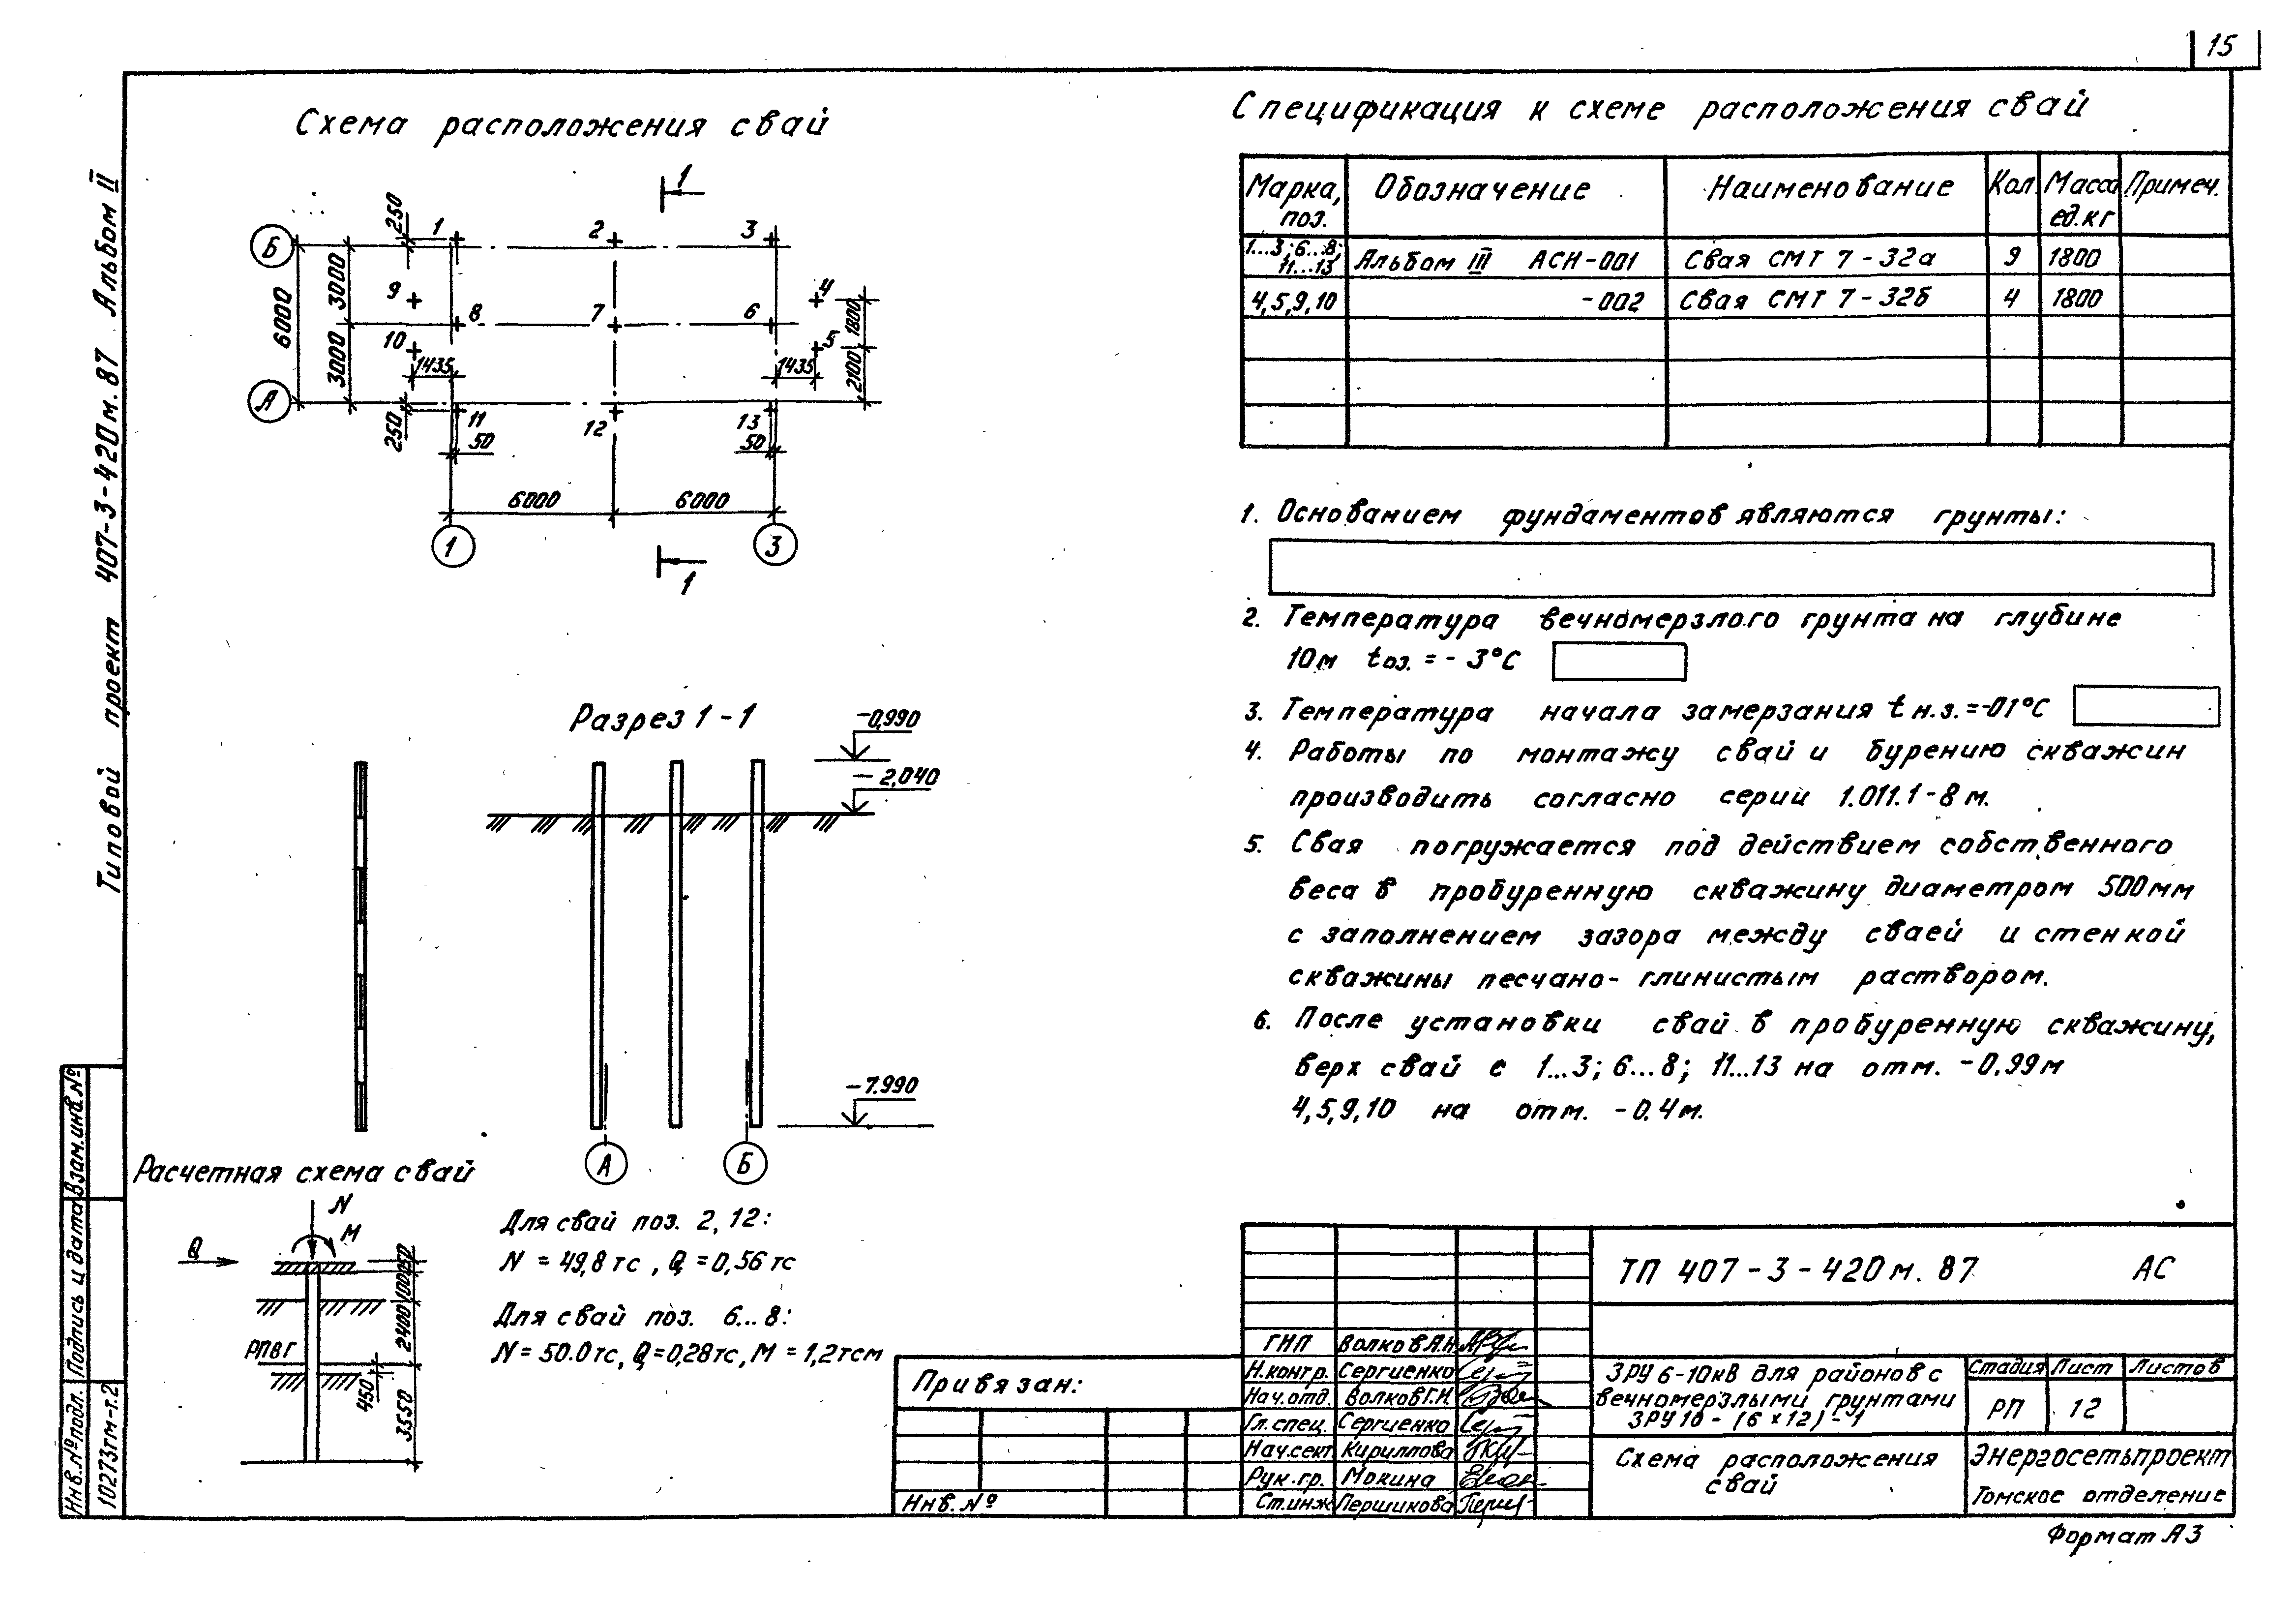 15
Типовой проект 407-3-420м.87 Альбом II
Схема расположения свай
1
1
Б
А
1
3
250
3000
3000
6000
250
1
2
3
4
5
6
7
8
9
10
11
12
13
1435
1435
1800
2100
50
50
6000
6000
Спецификация к схеме расположения свай
Марка, поз. Обозначение Наименование Кол. Масса ед.кг Примеч.
1...3;6...8; 11...13 Альбом III АСИ-001 Свая СМТ 7-32а 9 1800
4,5,9,10 -002 Свая СМТ 7-32б 4 1800
1. Основанием фундаментов являются грунты:
2. Температура вечномерзлого грунта на глубине
10м tоз. = - 3°С
3. Температура начала замерзания t н.з.=-01°С
4. Работы по монтажу свай и бурению скважин
производить согласно серии 1.011.1-8м.
5. Свая погружается под действием собственного
веса в пробуренную скважину диаметром 500мм
с заполнением зазора между сваей и стенкой
скважины песчано-глинистым раствором.
6. После установки свай в пробуренную скважину,
верх свай с 1...3; 6...8; 11...13 на отм. -0.99м
4,5,9,10 на отм. -0.4м.
Разрез 1-1
-0,990
-2,040
-7.990
А
Б
Расчетная схема свай
N
M
Q
РПВГ
2400
450
3550
Для свай поз. 2, 12:
N = 49,8 тс, Q = 0,56 тс
Для свай поз. 6...8:
N = 50.0тс, Q=0,28тс, M = 1,2тсм
Привязан:
Инв. №
ТП 407-3-420м.87 АС
ГИП Волков А.Н.
Н.контр. Сергиенко
Нач.отд. Волков Г.И.
Гл.спец. Сергиенко
Нач.сект Кириллова
Рук.гр. Мокина
Ст.инж Першикова
ЗРУ 6-10кВ для районов с
вечномерзлыми грунтами
ЗРУ 10-(6х12)-1
Стадия Лист Листов
РП 12
Схема расположения
свай
Энергосетьпроект
Томское отделение
Формат А3
Инв.№ подл. Подпись и дата Взам.инв.№
10273тм-т.2